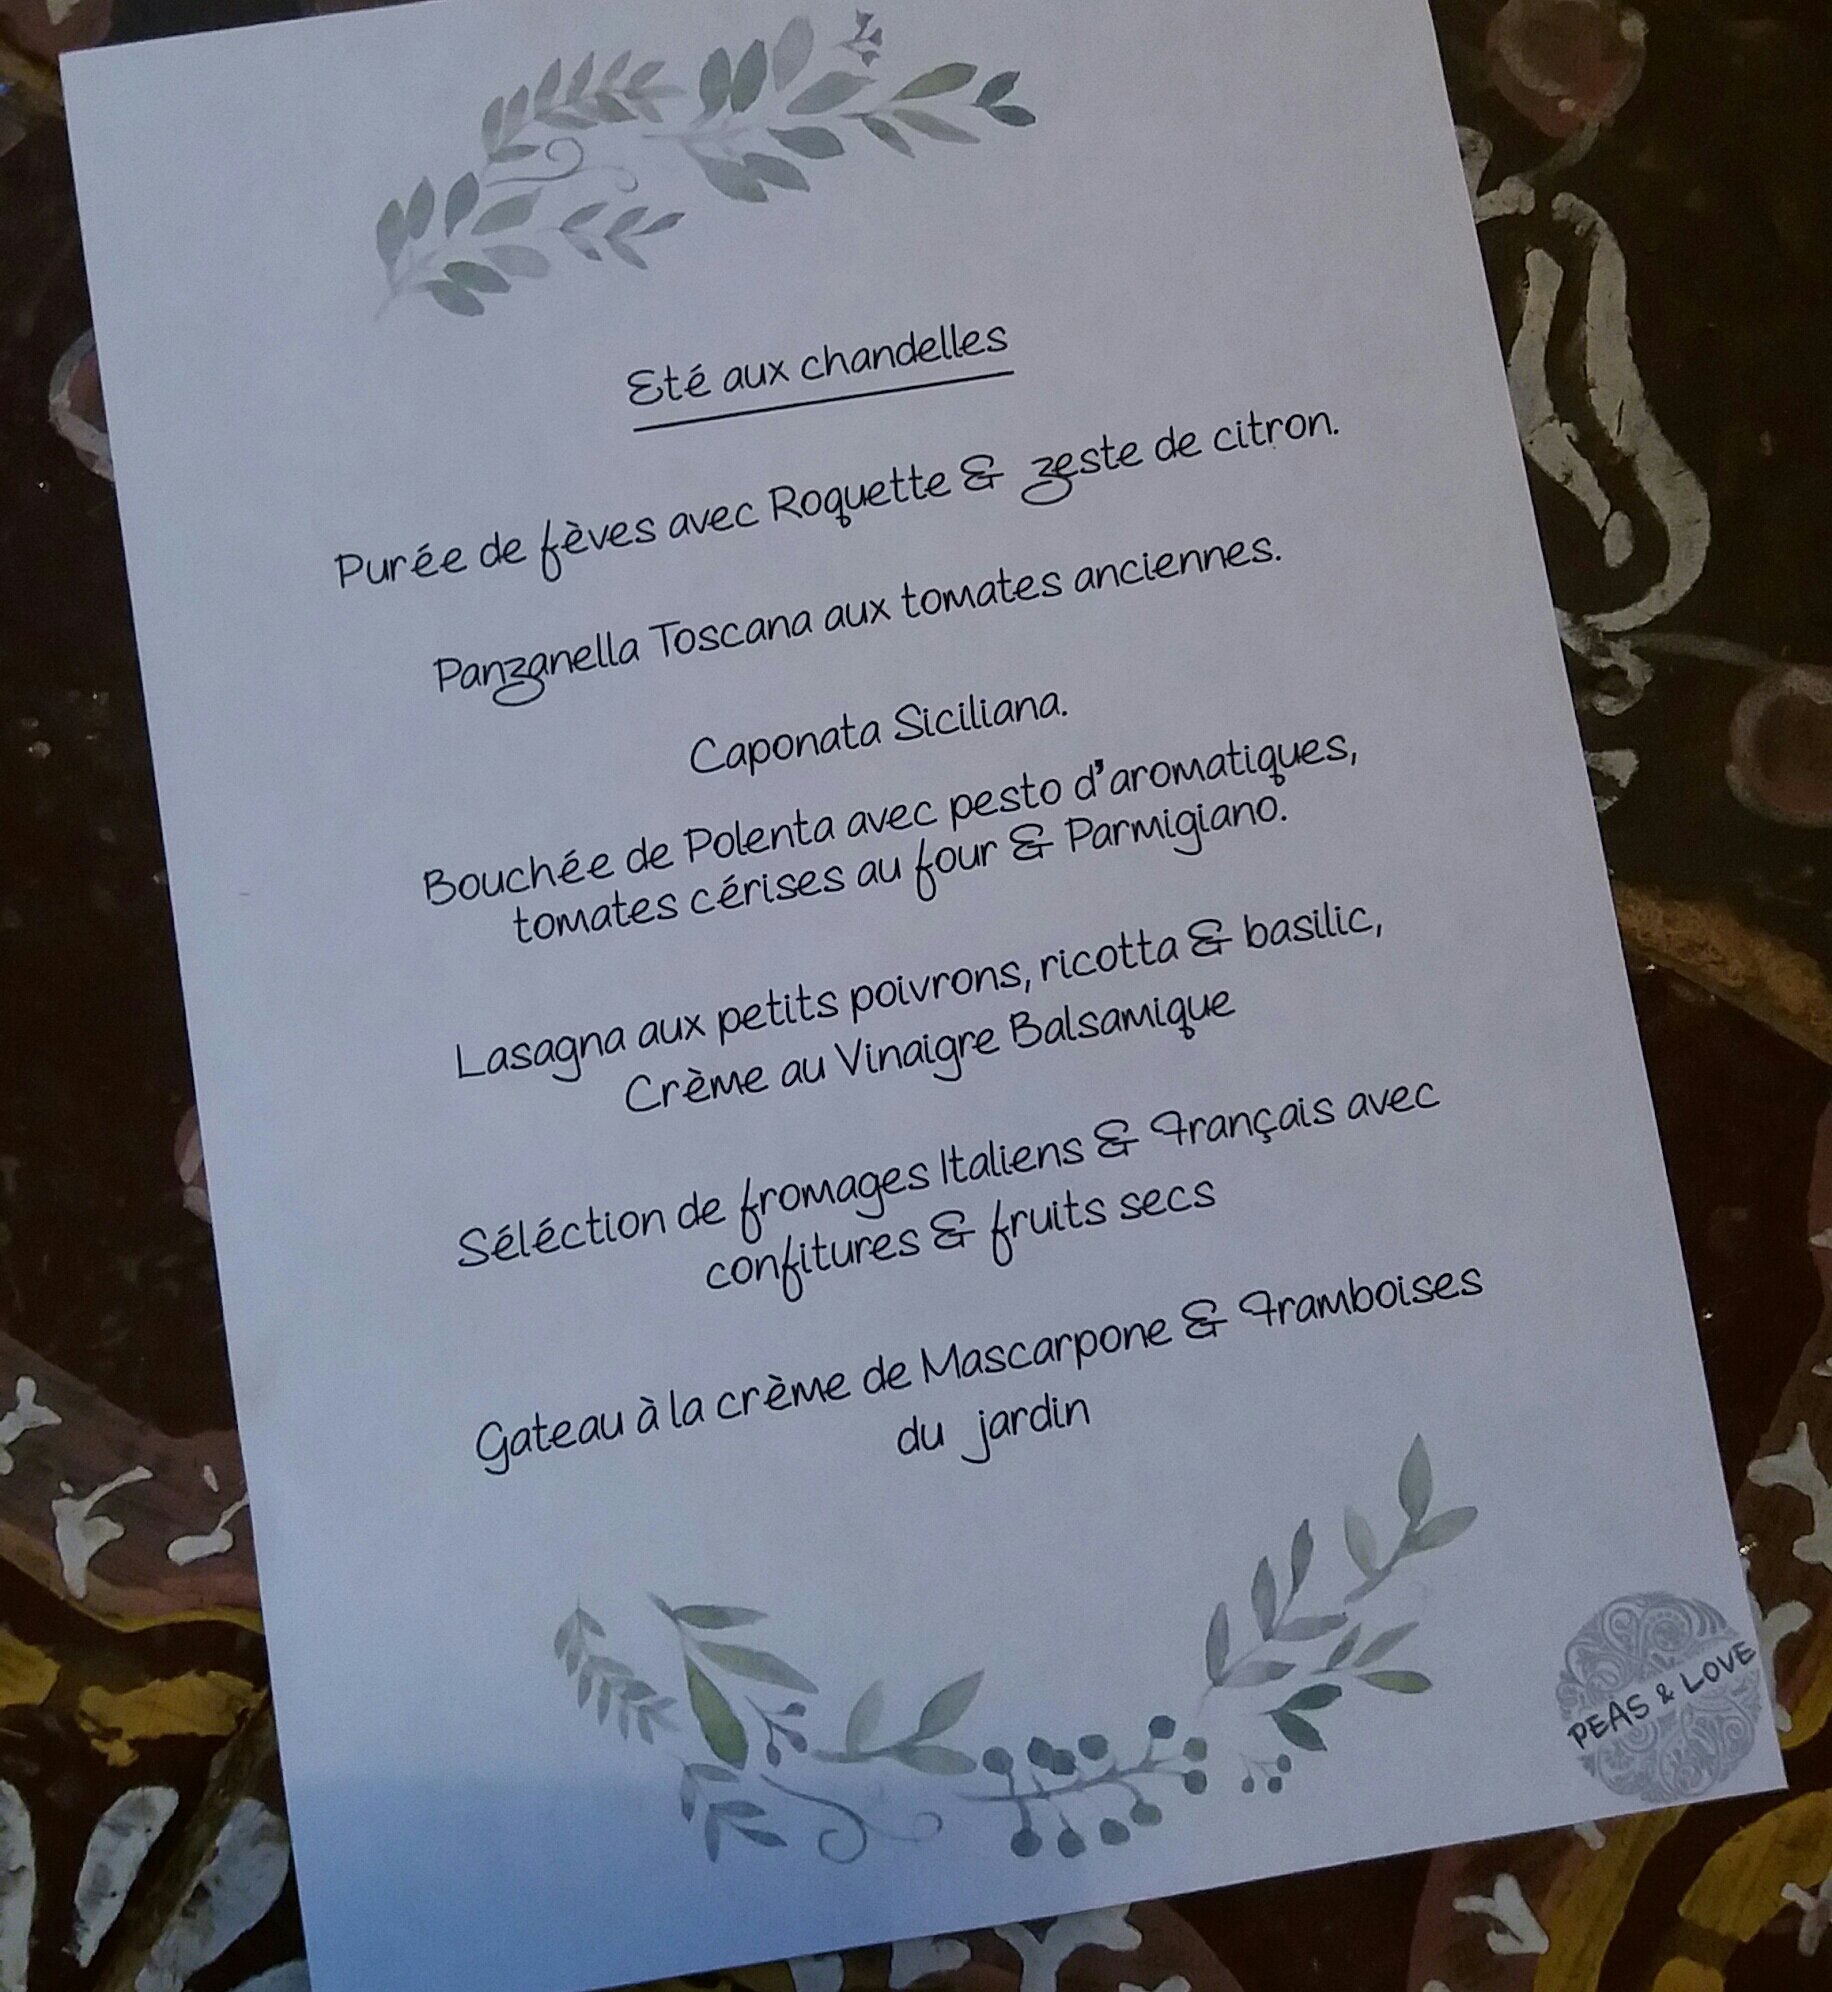 Eté aux chandelles
Purée de fèves avec Roquette & zeste de citron.
Panzanella Toscana aux tomates anciennes.
Caponata Siciliana.
Bouchée de Polenta avec pesto d'aromatiques,
tomates cérises au four & Parmigiano.
Lasagna aux petits poivrons, ricotta & basilic,
Crème au Vinaigre Balsamique
Séléction de fromages Italiens & Français avec
confitures & fruits secs
Gateau à la crème de Mascarpone & Framboises
du jardin
PEAS & LOVE